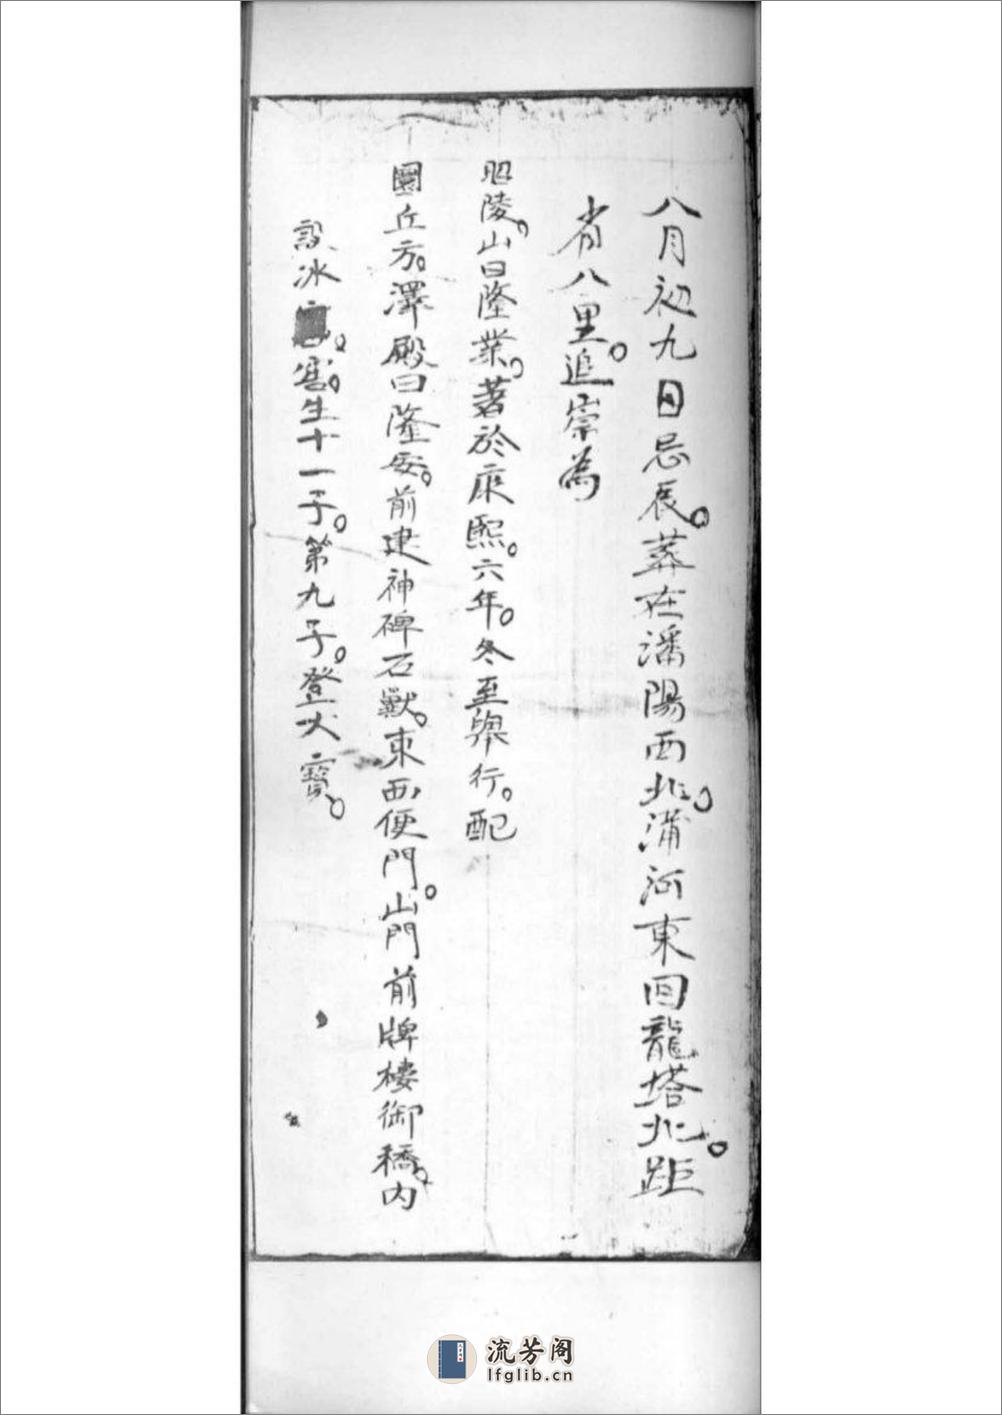 八月初九日忌辰。葬在瀋陽西北。蒲河東回龍塔北。距
省八里。追崇為
昭陵。山曰隆業。著於康熙。六年。冬至舉行。配
圜丘方。澤殿曰隆安。前建神碑石獸。東西便門。山門前牌樓御橋。內
設冰窖。生十一子。第九子。登大寶。
流芳阁
lfglib.cn